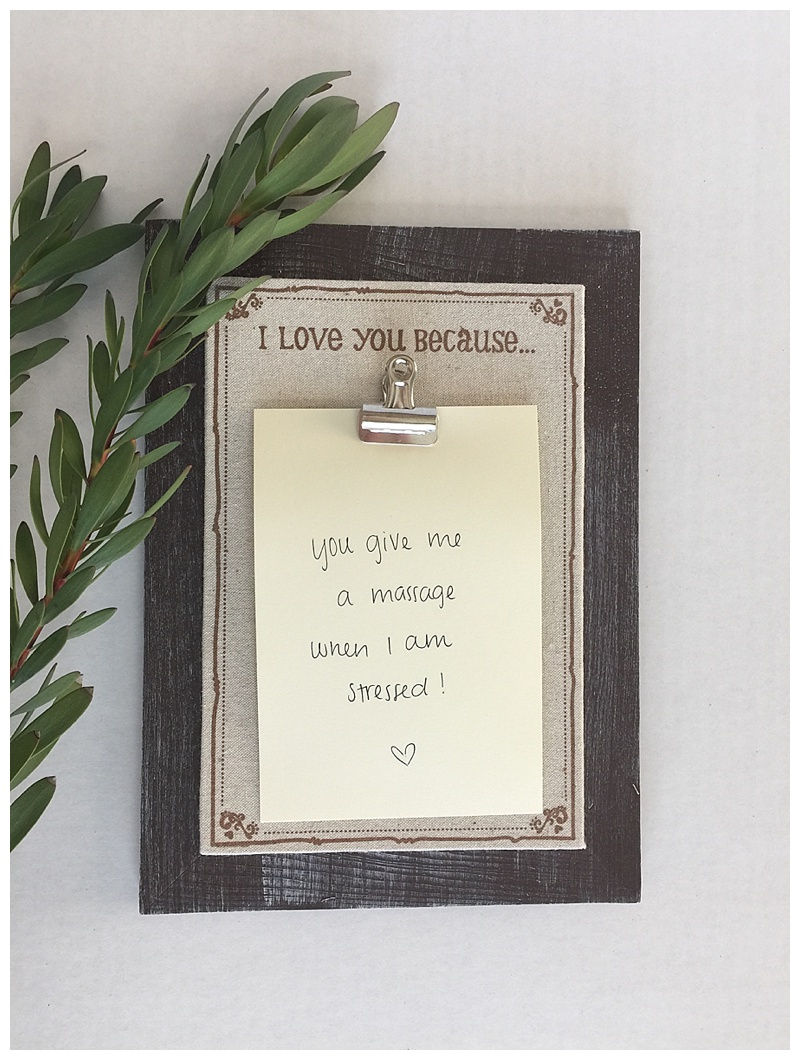 I LOVE YOU BECAUSE...
you give me
a massage
when I am
stressed!